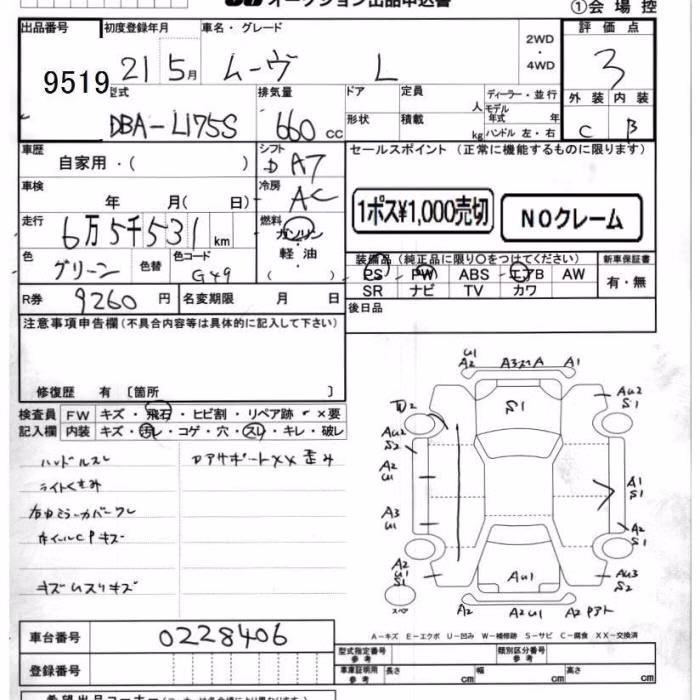 オークション出品申込書
①会場控
出品番号
初度登録年月
車名・グレード
2WD
・
4WD
評価点
9519
21 5月
ムーヴ L
3
型式
排気量
ドア
定員
人
ディーラー・並行
モデル
年式 年
外装 内装
DBA-L175S
660 cc
形状
積載
kg
ハンドル 左・右
C B
車歴
シフト
セールスポイント (正常に機能するものに限ります)
自家用・( )
D A7
車検
冷房
年 月( 日)
AC
1ポス¥1,000売切
NOクレーム
走行
燃料
6万5千531 km
ガソリン
・
軽油
( )
色
色替
色コード
グリーン
G49
装備品 (純正品に限り○をつけてください)
新車保証書
PS PW ABS エアB AW
有・無
SR ナビ TV カワ
R券
9260 円
名変期限 月 日
後日品
注意事項申告欄(不具合内容等は具体的に記入して下さい)
修復歴 有 〔箇所 〕
検査員 FW キズ・飛石・ヒビ割・リペア跡・×要
記入欄 内装 キズ・汚レ・コゲ・穴・スレ・キレ・破レ
ハンドルスレ
DアサポートXX歪み
ライトくもみ
ホイールCPキズ
キズムスリキズ
U1
A2
A1
S1
AU2
S1
AU2
S2
A2
U1
A1
S1
A3
U1
A2
S1
A2
U1
S1
AU1
AU3
S2
スペ
A2
A2U1
A2
A-キズ E-エクボ U-凹み W-補修跡 S-サビ C-腐食 XX-交換済
車台番号
0228406
型式指定番号
参考
類別区分番号
参考
登録番号
車庫証明用
参考
長さ cm
幅 cm
高さ cm
希望出品コーナー